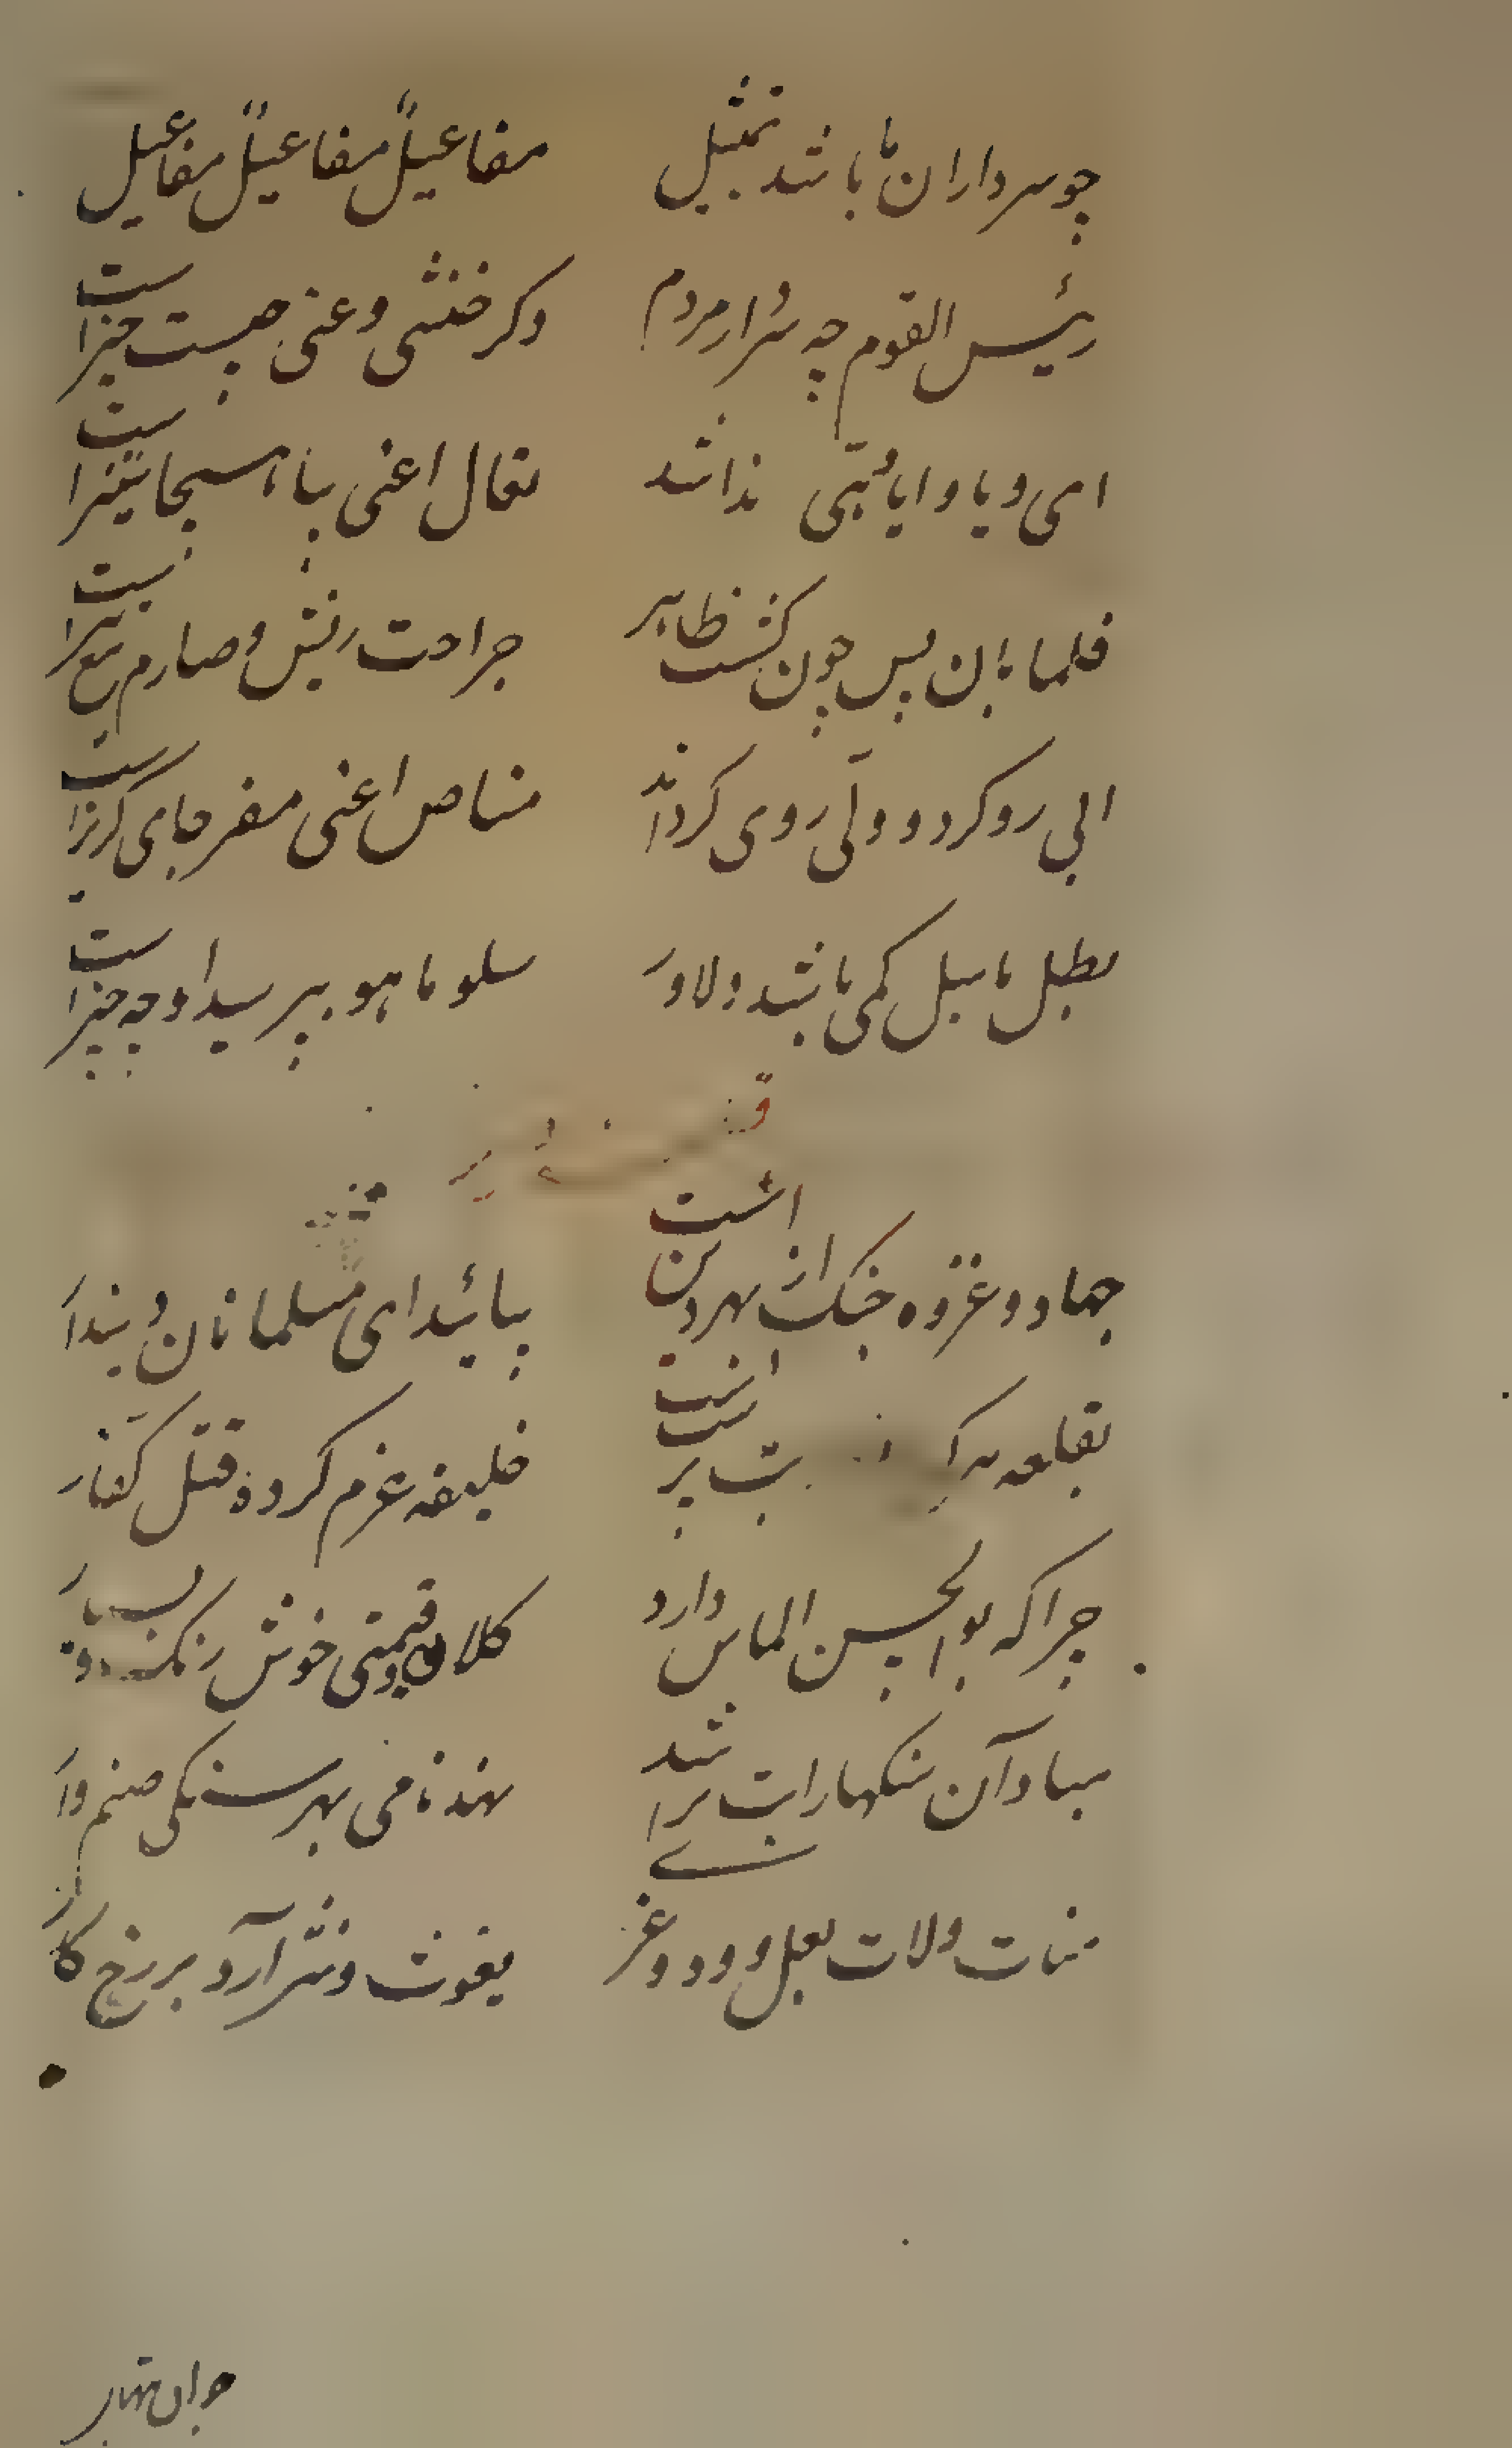 چو سرداران ما باشد تمثیل مفاعیلً مفاعیلً مفاعیل
رئیس القوم چه سردار مردم دکر خنثی و عنی چیست چیز است
ای و یا و ایا و هیی ندا شد تعال اعنی بیا اینجا ستیز است
فلما بان پس چون کشت ظاهر جراحت ریش و صارم تیغ تیز است
الی رو کرد و ولّی روی کرداند مناص اعنی مفر جای کریز است
بطل باسل کمی باشد دلاور سلو ما هو بپرسید او چه چیز است
جهاد و غزوه جنک از بهر دین است بیائید ای مسلمانان دیندار
بقلعه بت پرست است خلیفه عزم کرده قتل کفار
چرا که بوالحسن الماس دارد کلان و قیمتی خوش رنک و بسیار
مباد آن سنکها را بت تراشد نهد نامی بهر سنکی صنم وار
منات ولات بعل و ود و عز یغوث و نسر آرد بر رخ کار
جوان تهار